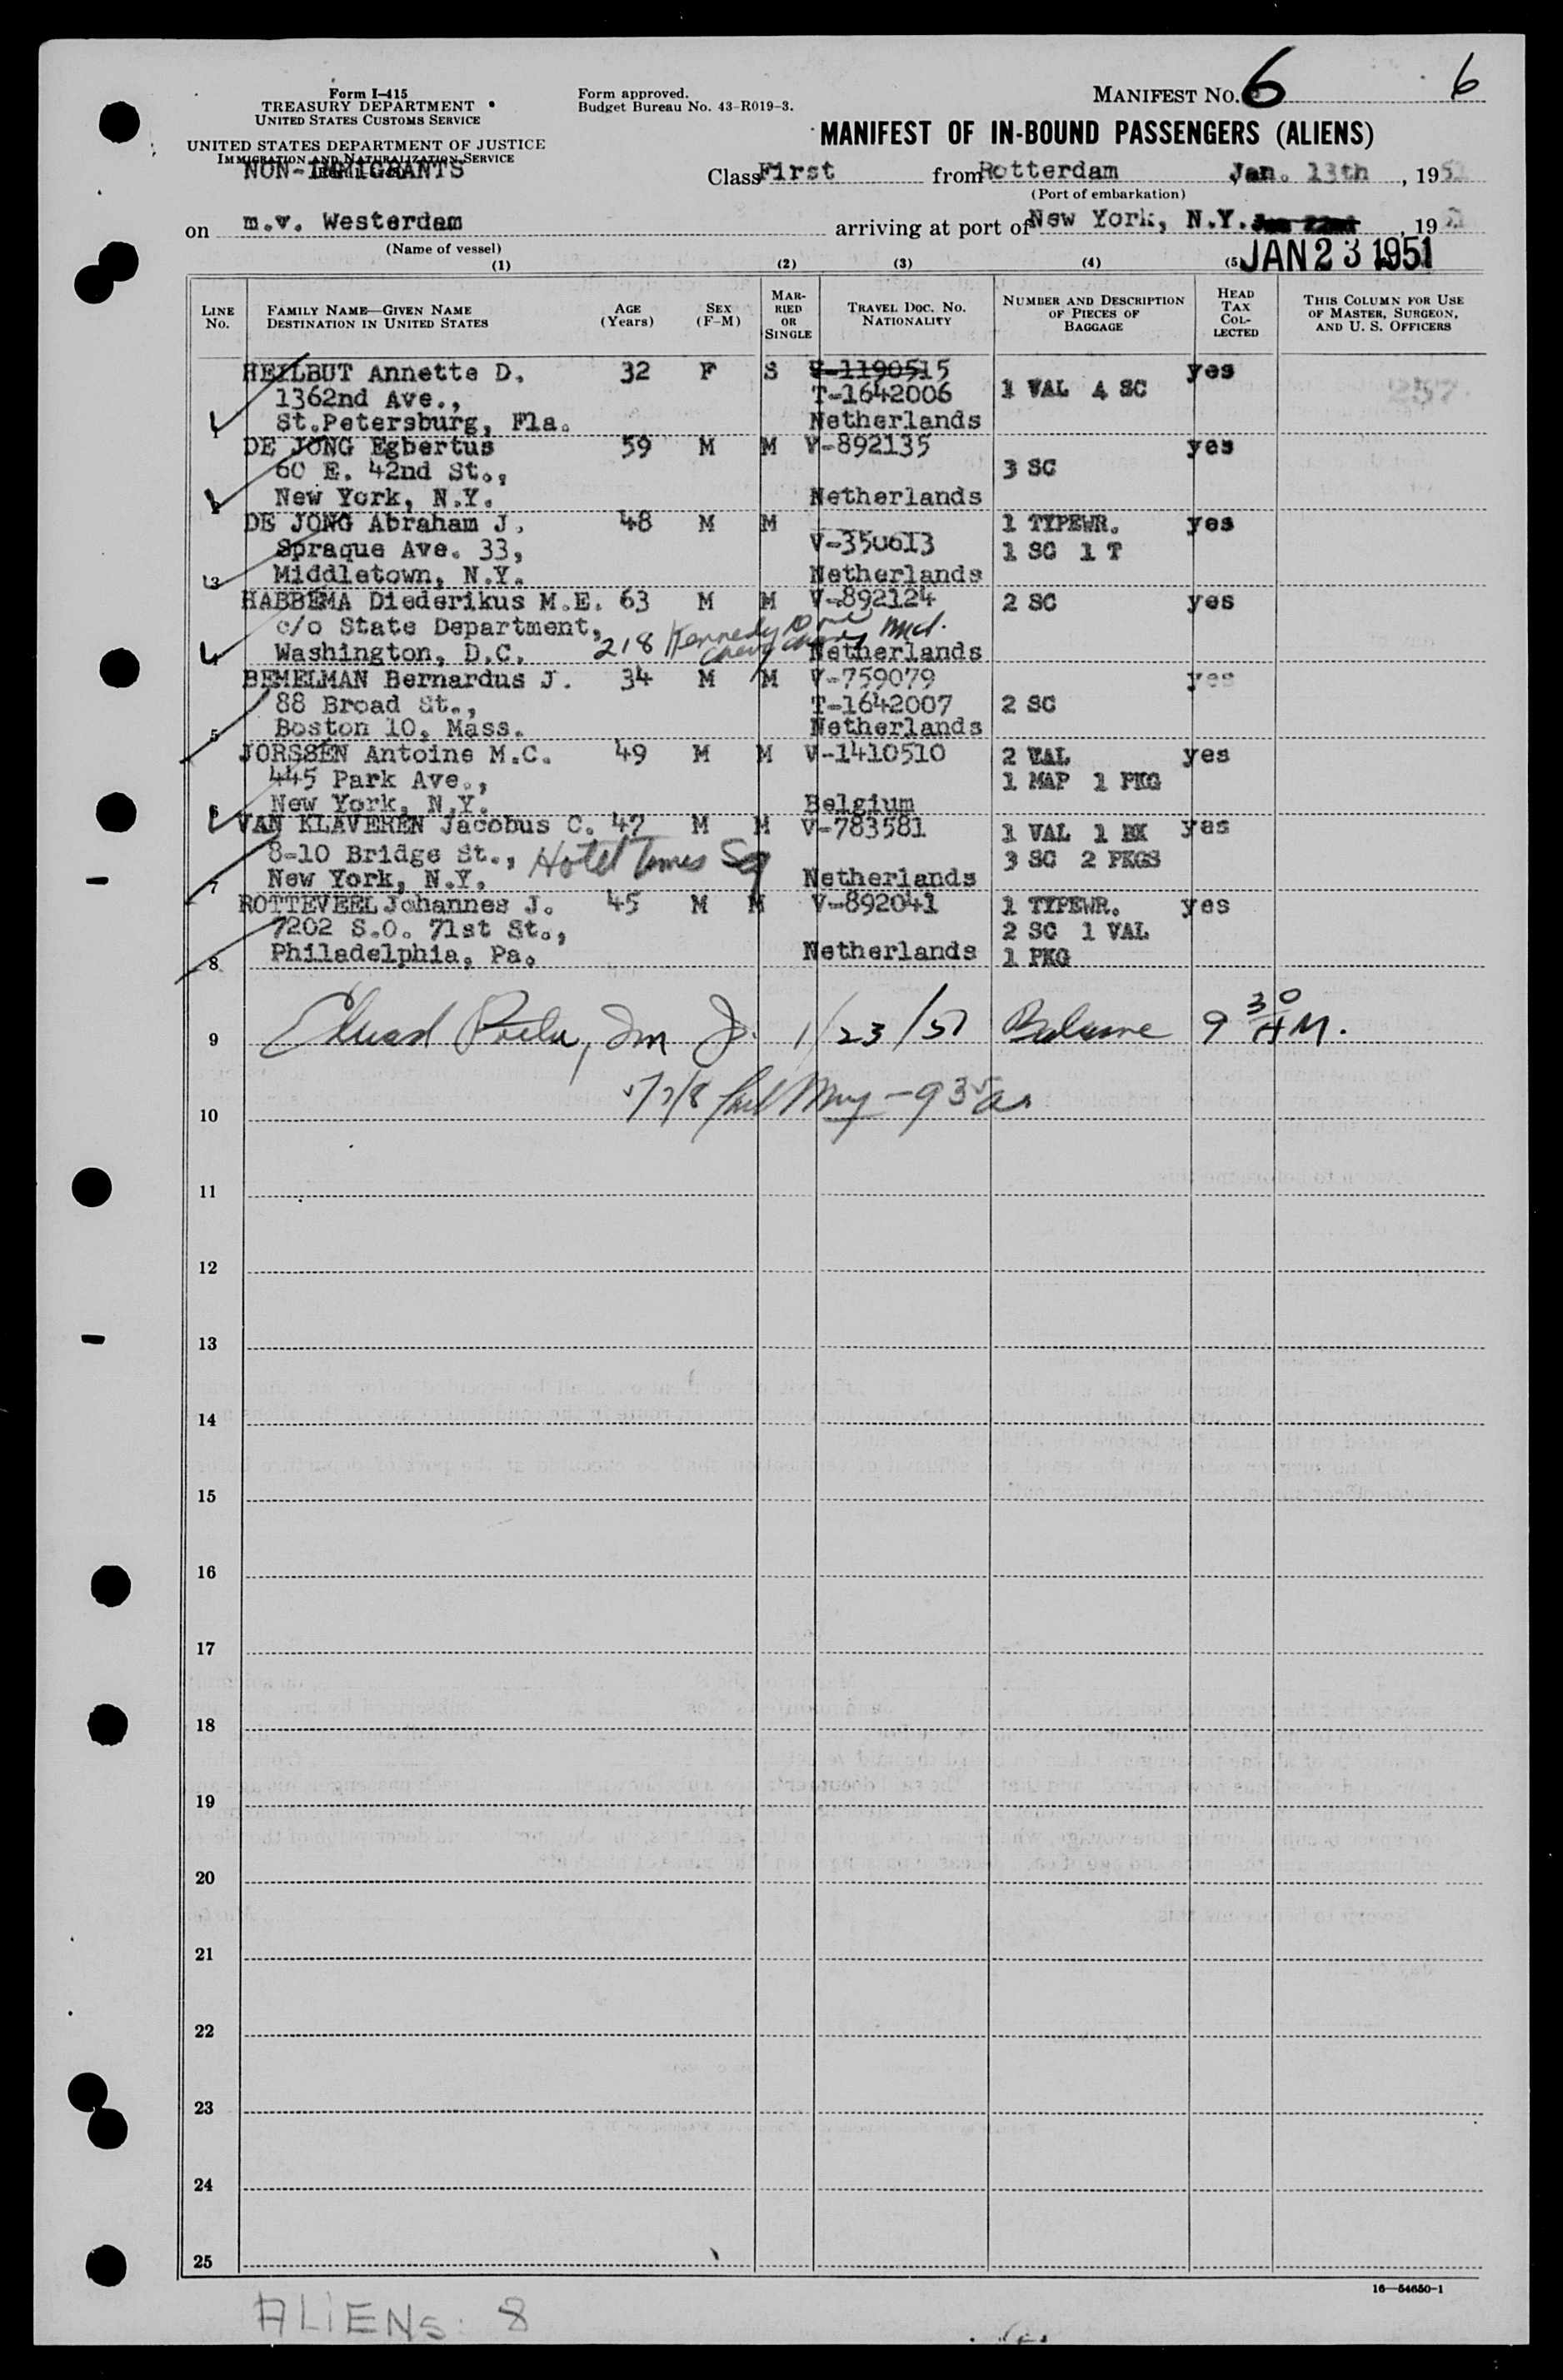 Form I-415
TREASURY DEPARTMENT
UNITED STATES CUSTOMS SERVICE
UNITED STATES DEPARTMENT OF JUSTICE
IMMIGRATION AND NATURALIZATION SERVICE
NON-IMMIGRANTS
Form approved.
Budget Bureau No. 43-R019-3.
MANIFEST NO. 6
6
MANIFEST OF IN-BOUND PASSENGERS (ALIENS)
Class First from Rotterdam Jan. 13th, 1951
(Port of embarkation)
on m.v. Westerdam arriving at port of New York, N.Y. , 19
(Name of vessel)
JAN 23 1951
(1) (2) (3) (4) (5)
LINE NO. FAMILY NAME—GIVEN NAME DESTINATION IN UNITED STATES AGE (Years) SEX (F-M) MARRIED OR SINGLE TRAVEL DOC. NO. NATIONALITY NUMBER AND DESCRIPTION OF PIECES OF BAGGAGE HEAD TAX COLLECTED THIS COLUMN FOR USE OF MASTER, SURGEON, AND U. S. OFFICERS
HEILBUT Annette D. 32 F S V-1190515 yes
1362nd Ave., T-1642006 1 VAL 4 SC
1 St.Petersburg, Fla. Netherlands
DE JONG Egbertus 59 M M V-892135 yes
60 E. 42nd St., 3 SC
2 New York, N.Y. Netherlands
DE JONG Abraham J. 48 M M 1 TYPEWR. yes
Spraque Ave. 33, V-350613 1 SC 1 T
3 Middletown, N.Y. Netherlands
HABBEMA Diederikus M.E. 63 M M V-892124 2 SC yes
c/o State Department, 218 Kennedy Drive
4 Washington, D.C. Chevy Chase Md. Netherlands
BEMELMAN Bernardus J. 34 M M V-759079 yes
88 Broad St., T-1642007 2 SC
5 Boston 10, Mass. Netherlands
JORSSEN Antoine M.C. 49 M M V-1410510 2 VAL yes
445 Park Ave., 1 MAP 1 PKG
6 New York, N.Y. Belgium
VAN KLAVEREN Jacobus C. 47 M M V-783581 1 VAL 1 BX yes
8-10 Bridge St., Hotel Times Sq 3 SC 2 PKGS
7 New York, N.Y. Netherlands
ROTTEVEEL Johannes J. 45 M M V-892041 1 TYPEWR. yes
7202 S.O. 71st St., 2 SC 1 VAL
8 Philadelphia, Pa. Netherlands 1 PKG
9 1/23/51 9 30 AM.
5/7/8 - 9 35 a
10
11
12
13
14
15
16
17
18
19
20
21
22
23
24
25
16—54650-1
ALIENS: 8